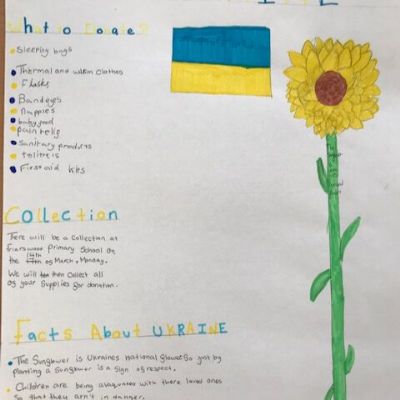 What to Donate?
Sleeping bags
Thermal and warm clothes
Flasks
Bandages
Nappies
baby food
pain relif
Sanitary products
toiliteis
First aid kits
Collection
There will be a collection at
Friarswood Primary School on
the 14th of March, Monday.
We will then collect all
of your supplies for donation.
Facts About UKRAINE
The Sunflower is Ukraines national flower So just by
planting a Sunflower is a sign of respect.
Children are being with there loved ones
So that they arn't in danger.